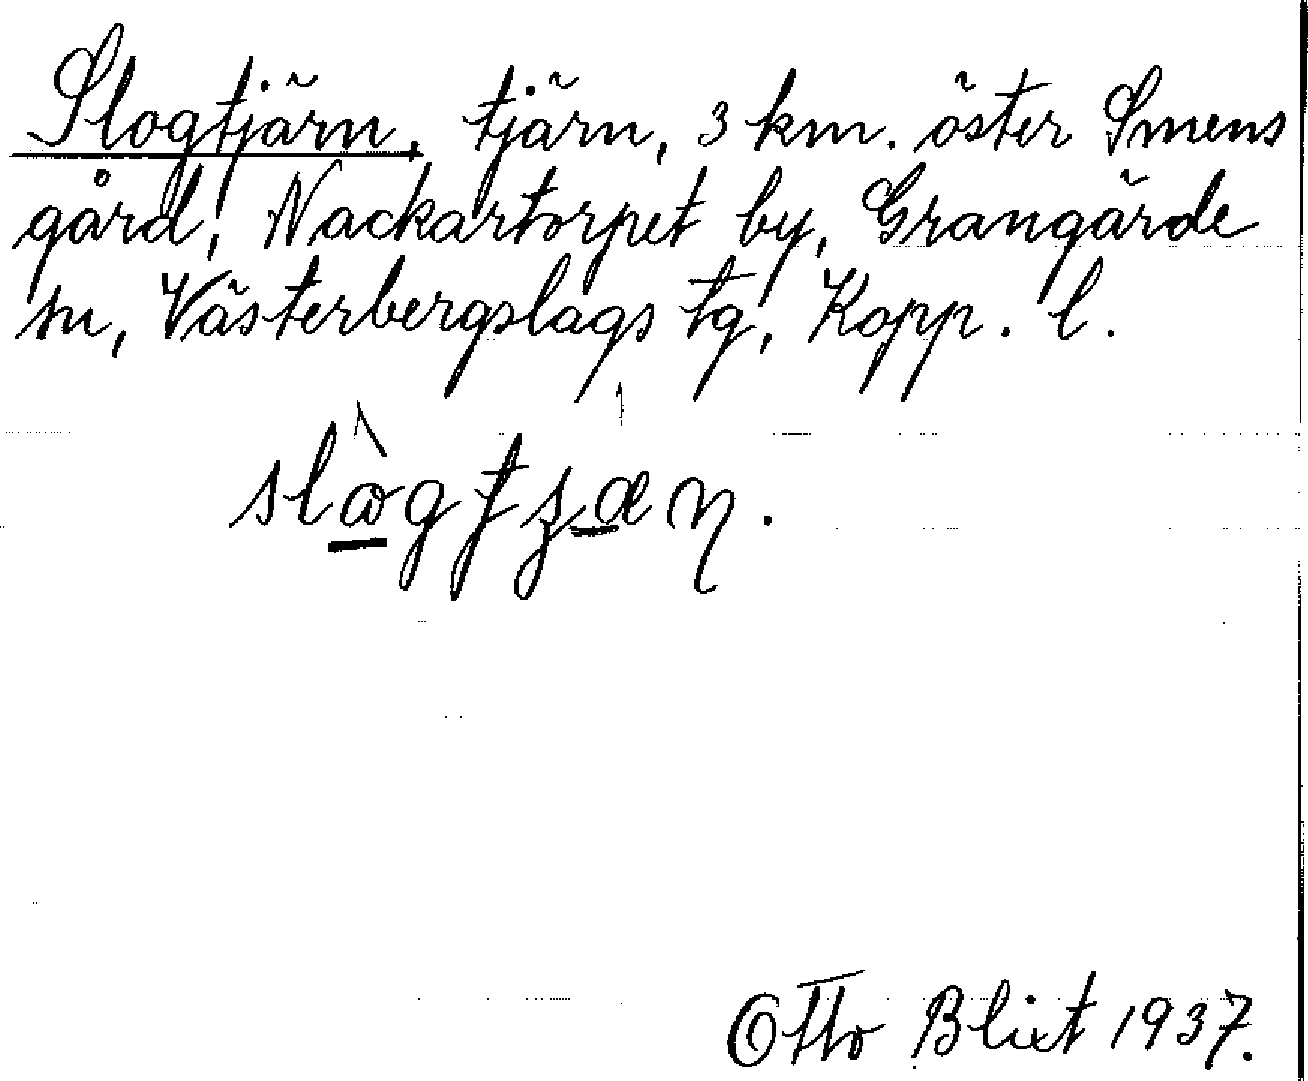 Slogtjärn, tjärn, 3 km. öster Smens
gård, Nackartorpet by, Grangärde
sn, Västerbergslags tg, Kopp. l.
Otto Blixt 1937.